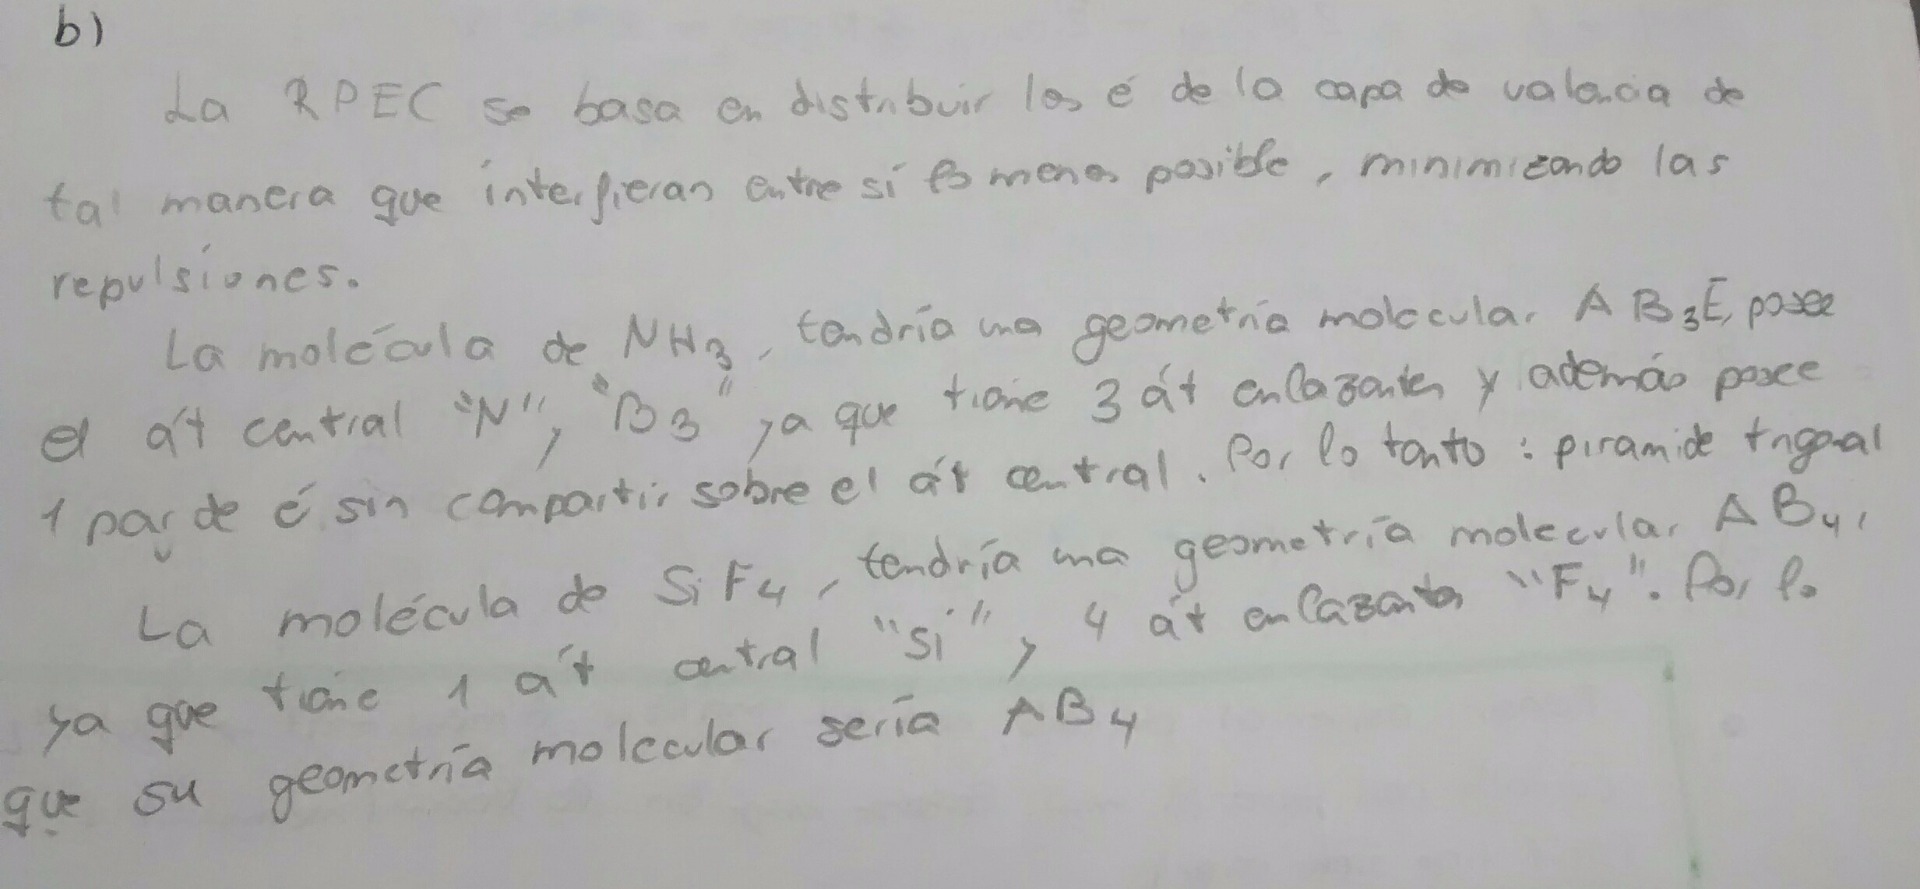 b)
La RPEC se basa en distribuir los é de la capa de valencia de
tal manera que interfieran entre sí lo menos posible, minimizando las
repulsiones.
La molécula de NH3, tendría una geometría molecular AB3E, posee
el át central "N", "B3" ya que tiene 3 át enlazantes y además posee
1 par de é sin compartir sobre el át central. Por lo tanto: piramide trigonal
La molécula de SiF4, tendría una geometría molecular AB4,
ya que tiene 1 át central "Si", 4 át enlazantes "F4". Por lo
que su geometría molecular sería AB4